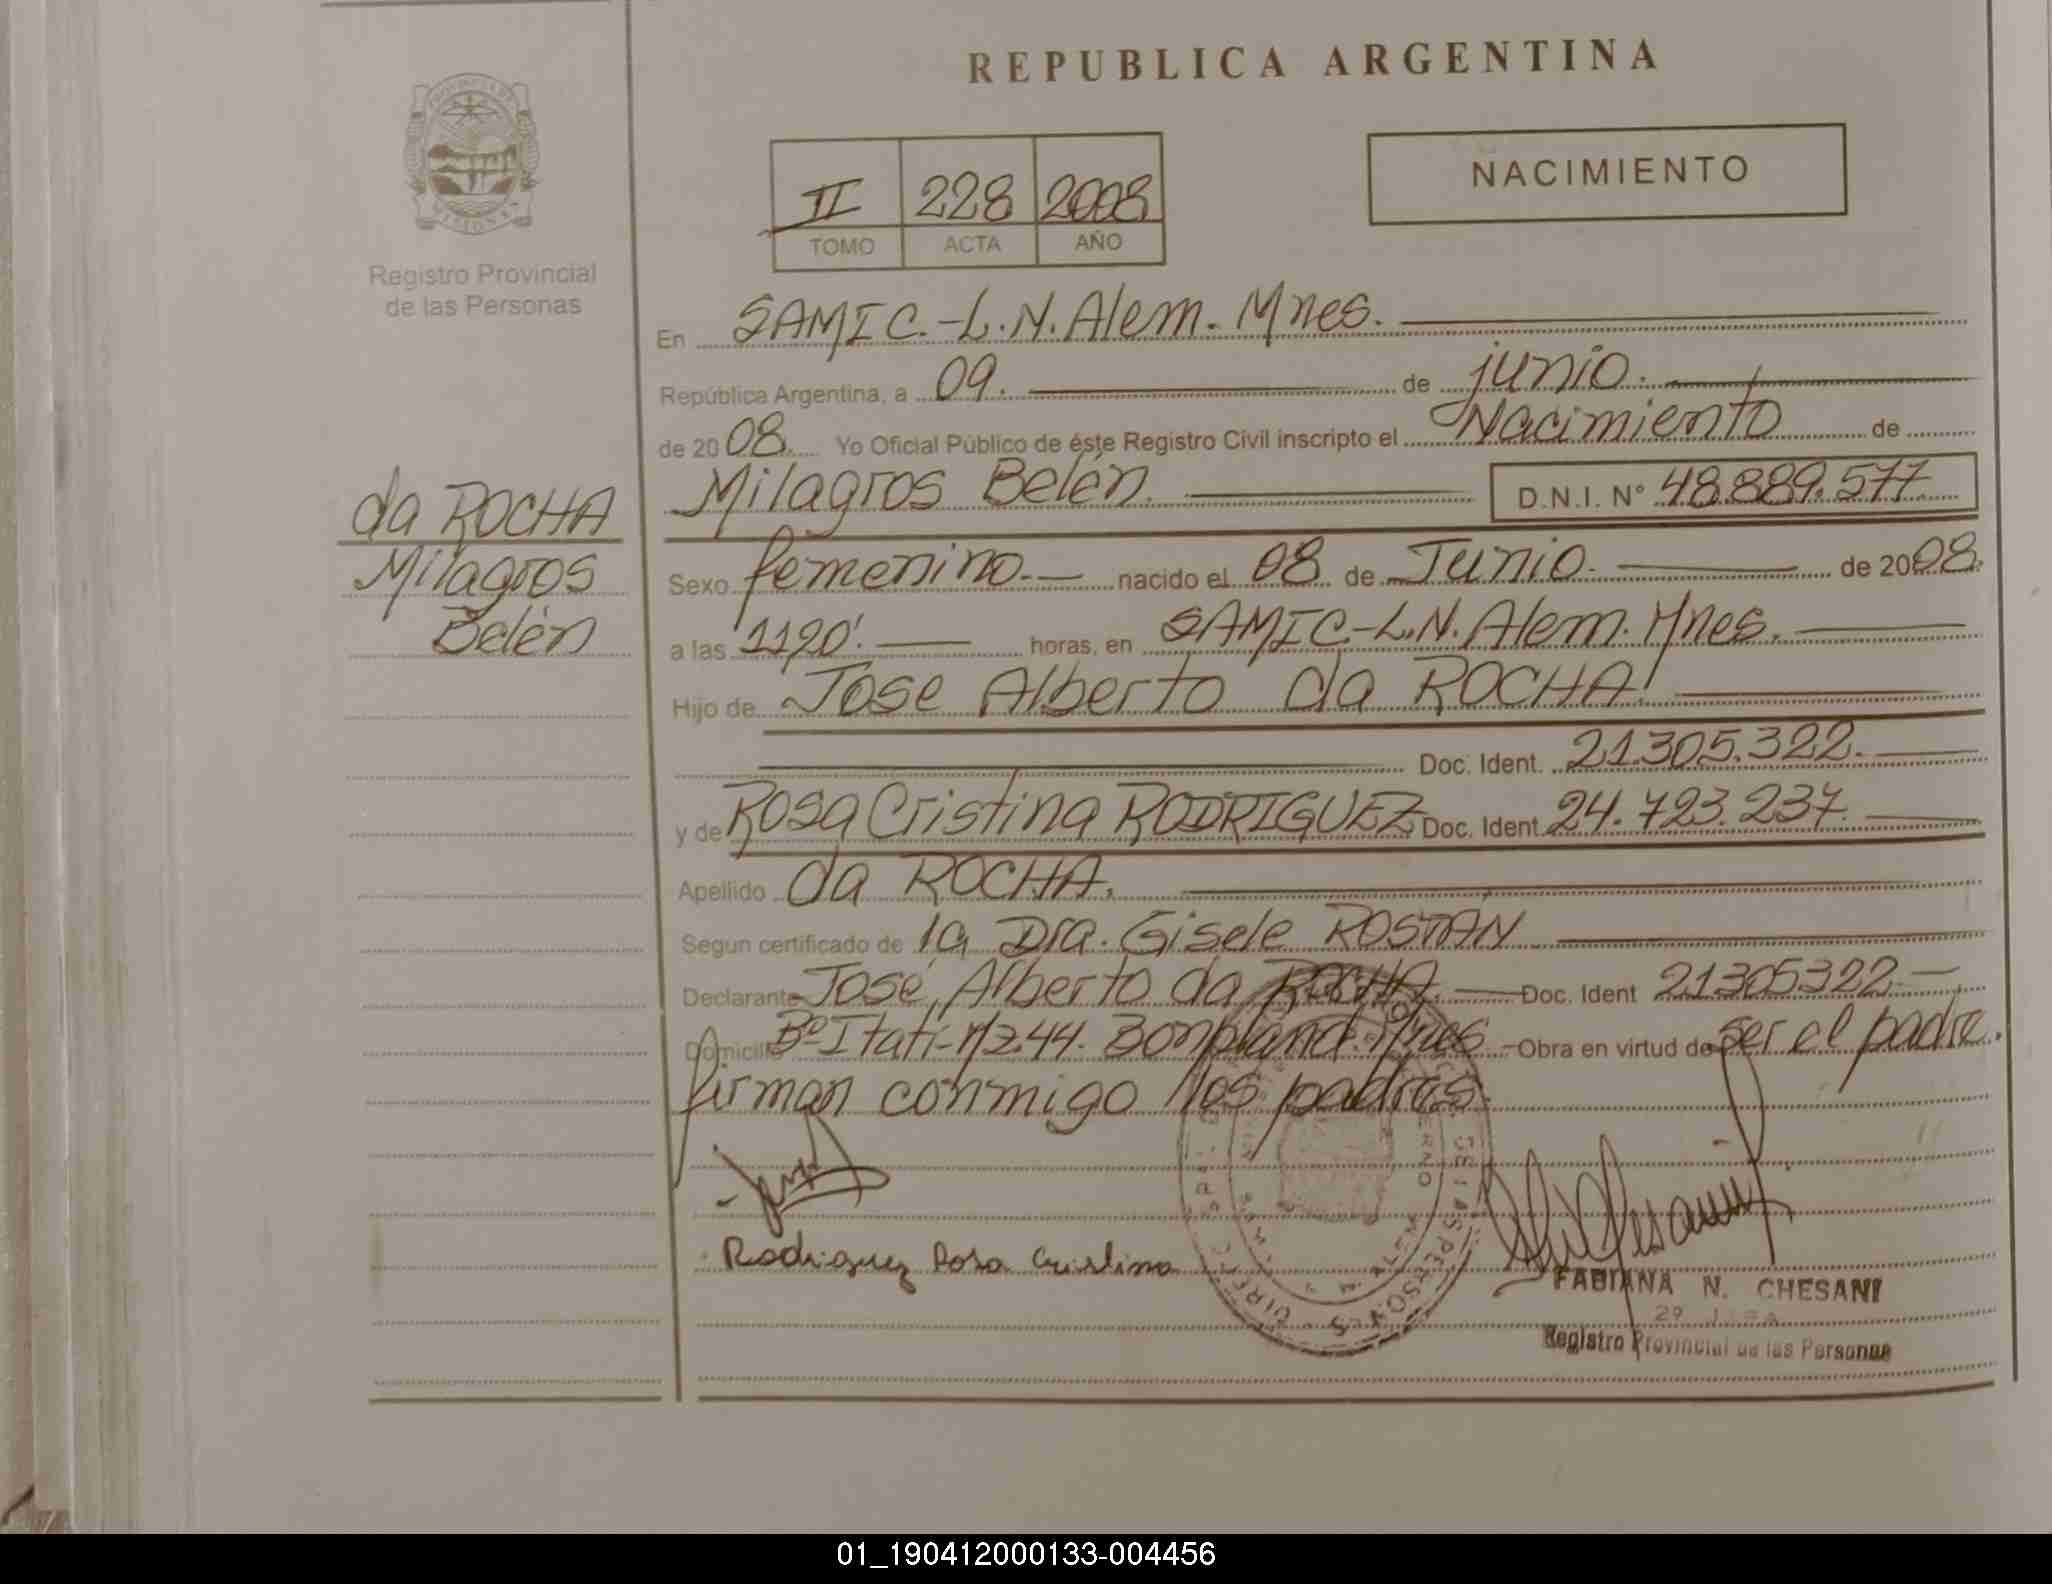 REPUBLICA ARGENTINA
NACIMIENTO
II 228 2008
TOMO ACTA AÑO
Registro Provincial
de las Personas
En SAMIC.-L.N.Alem.Mnes.
República Argentina, a 09. de junio.
de 2008. Yo Oficial Público de éste Registro Civil inscripto el Nacimiento de
da ROCHA
Milagros
Belén
Milagros Belén. D.N.I. Nº 48.889.577
Sexo femenino.- nacido el 08 de Junio. de 2008.
a las 1120'. horas, en SAMIC-L.N.Alem.Mnes.
Hijo de Jose Alberto da ROCHA.
Doc. Ident. 21.305.322.
y de Rosa Cristina RODRIGUEZ Doc. Ident. 24.723.237.
Apellido da ROCHA.
Segun certificado de la Dra. Gisele ROSTÁN
Declarante José Alberto da ROCHA. Doc. Ident 21305322-
Domicilio Bº Itatí-Mz44. Bonpland. Mnes - Obra en virtud de ser el padre.
firman conmigo los padres.
Rodriguez Rosa Cristina
FABIANA N. CHESANI
Registro Provincial de las Personas
01_190412000133-004456